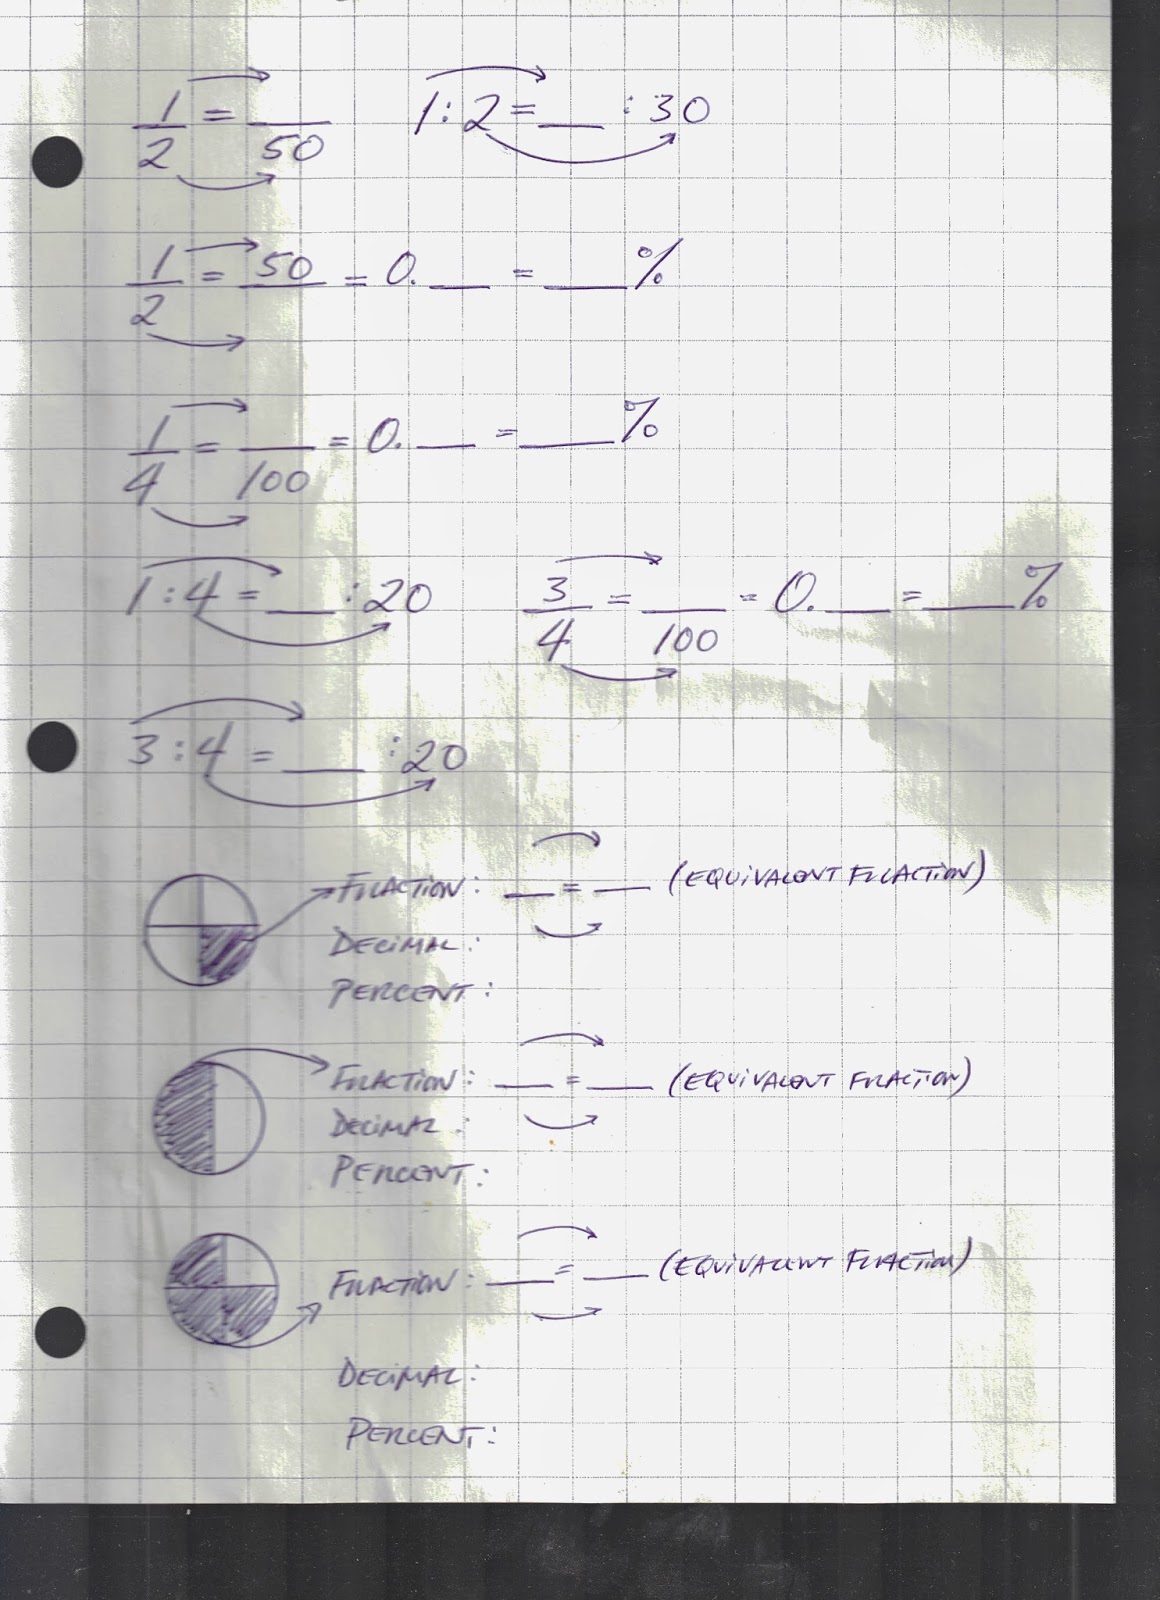 1/2 = __/50 1:2 = __ :30
1/2 = 50/__ = 0.__ = __%
1/4 = __/100 = 0.__ = __%
1:4 = __ :20 3/4 = __/100 = 0.__ = __%
3:4 = __ :20
FRACTION: __ = __ (EQUIVALENT FRACTION)
DECIMAL:
PERCENT:
FRACTION: __ = __ (EQUIVALENT FRACTION)
DECIMAL:
PERCENT:
FRACTION: __ = __ (EQUIVALENT FRACTION)
DECIMAL:
PERCENT: